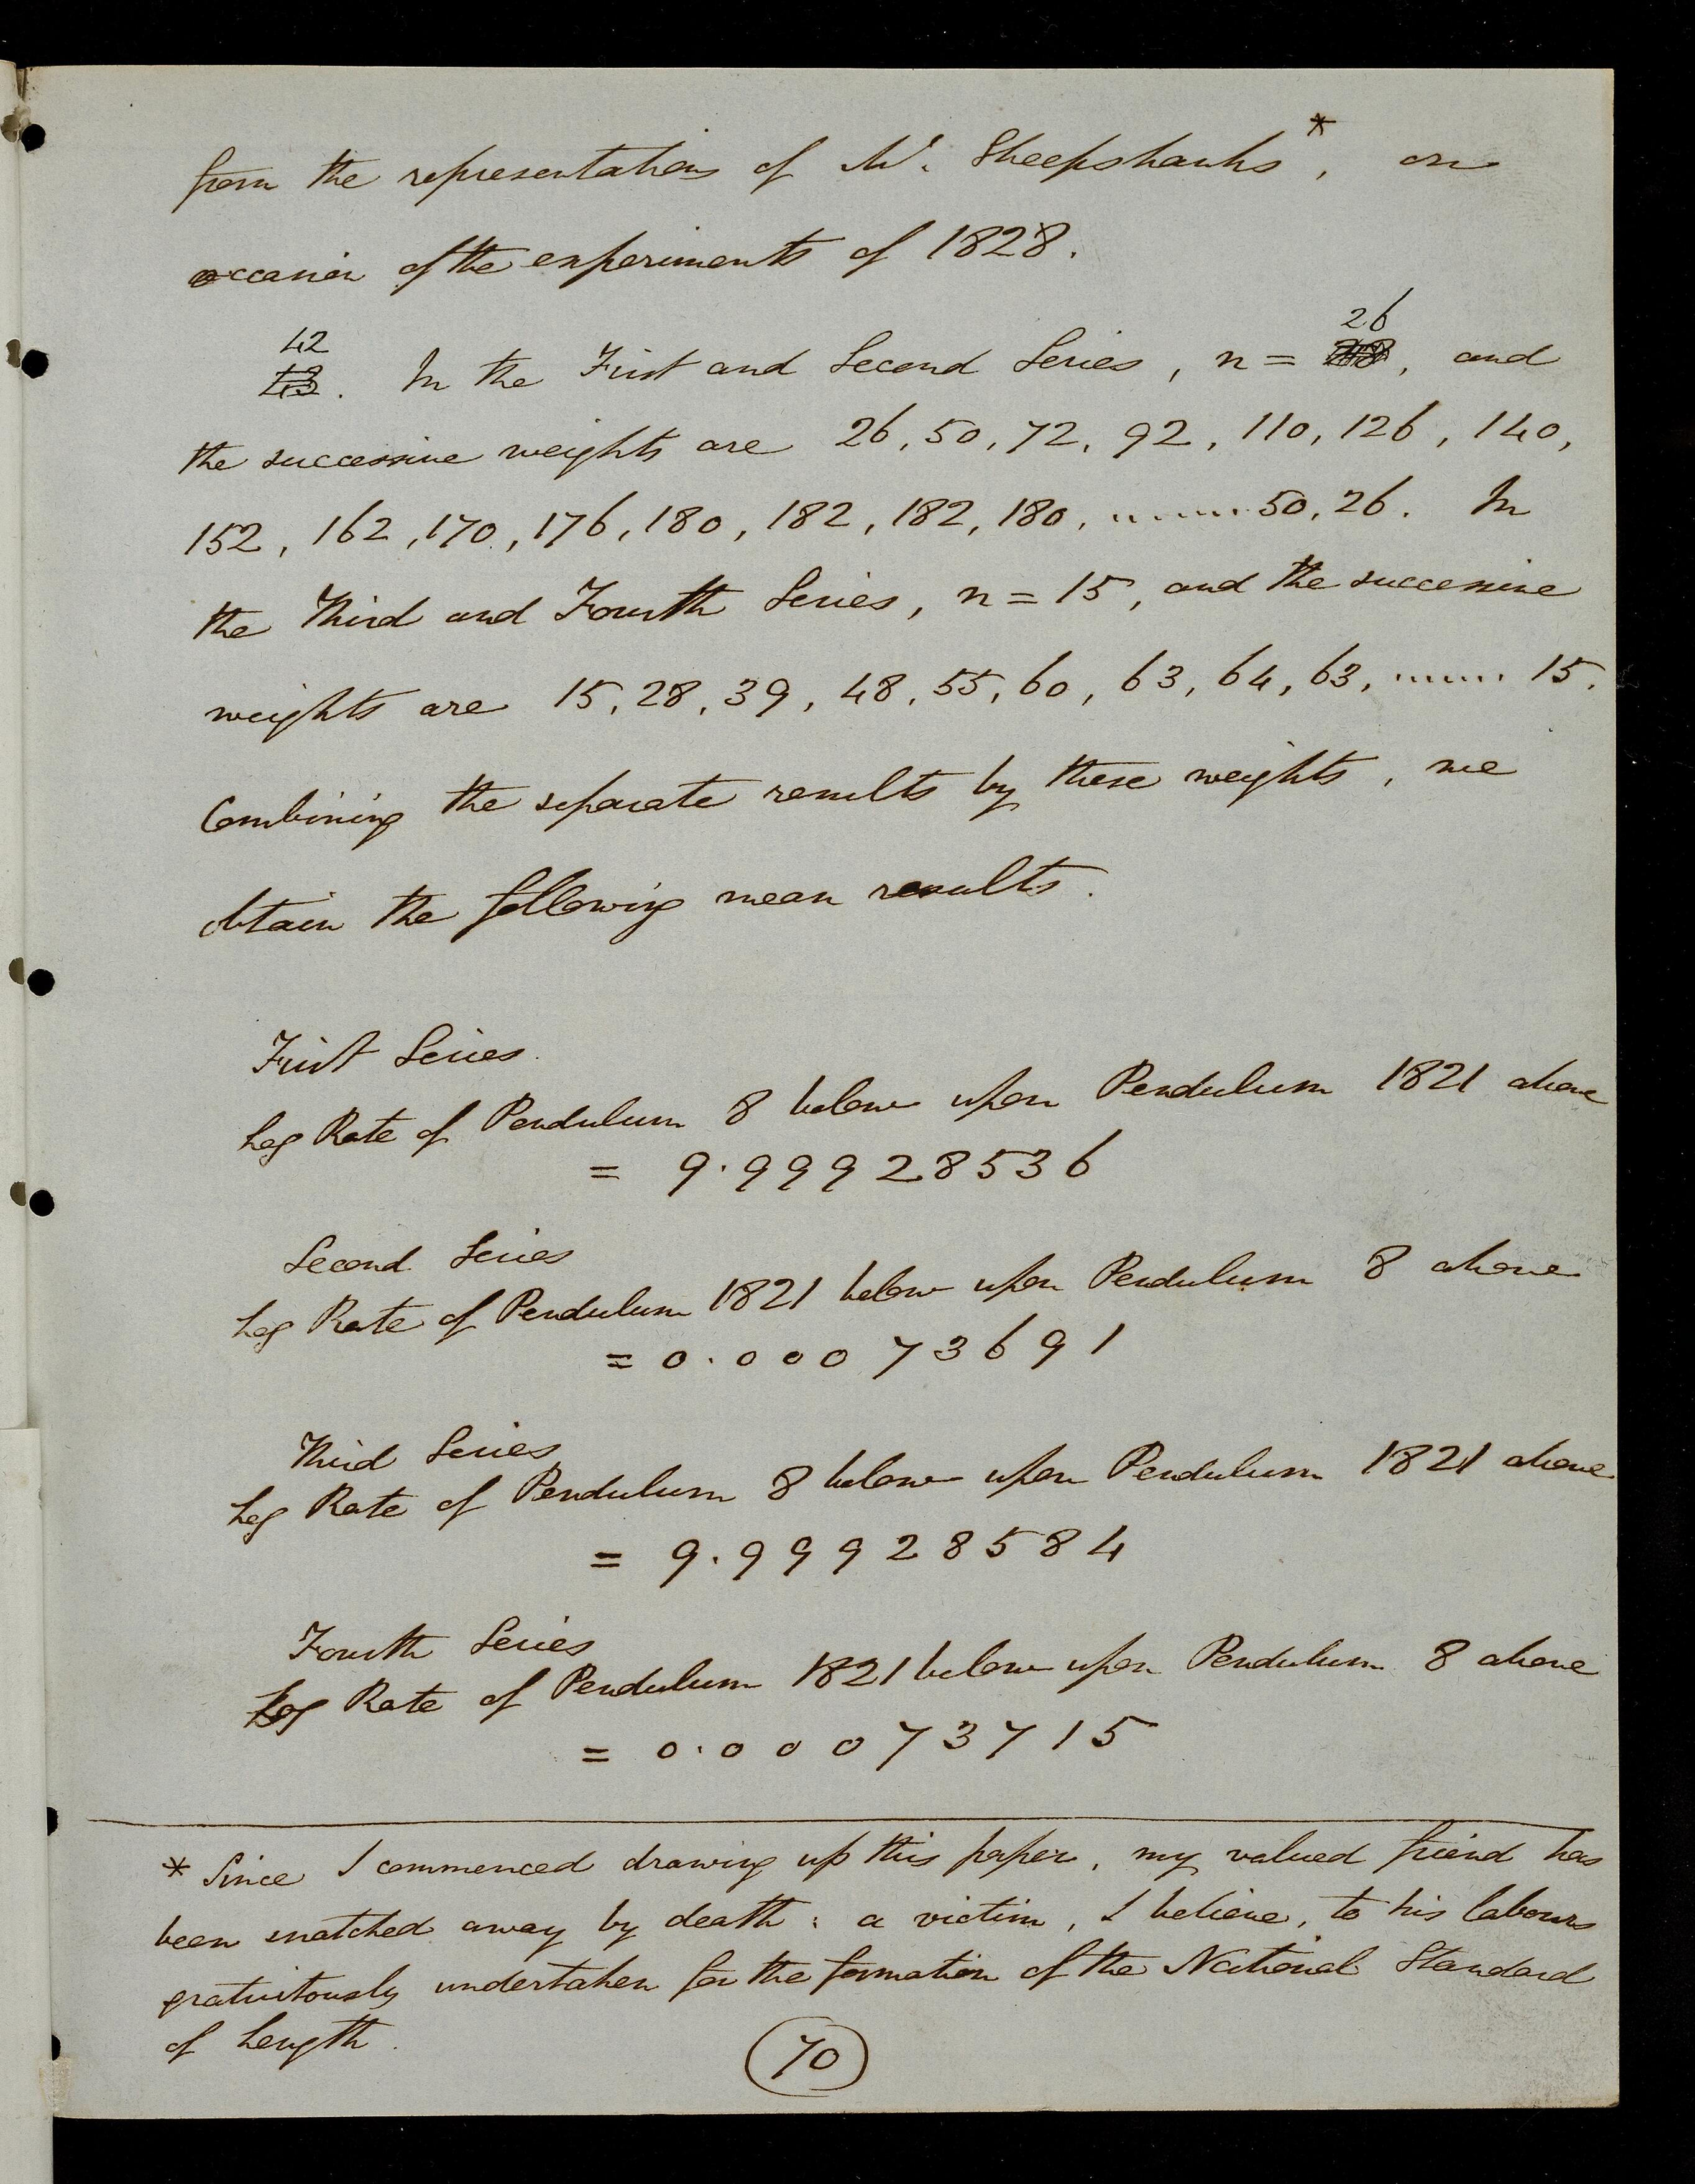 from the representations of Mr. Sheepshanks*, on
occasion of the experiments of 1828.
26
42
43. In the First and Second Series, n = , and
the successive weights are 26, 50, 72, 92, 110, 126, 140,
152, 162, 170, 176, 180, 182, 182, 180, ...... 50, 26. In
the Third and Fourth Series, n = 15, and the successive
weights are 15, 28, 39, 48, 55, 60, 63, 64, 63, ...... 15.
Combining the separate results by these weights, we
obtain the following mean results.
First Series.
Log Rate of Pendulum 8 below upon Pendulum 1821 above
= 9.99928536
Second Series
Log Rate of Pendulum 1821 below upon Pendulum 8 above
= 0.00073691
Third Series
Log Rate of Pendulum 8 below upon Pendulum 1821 above
= 9.99928584
Fourth Series
Log Rate of Pendulum 1821 below upon Pendulum 8 above
= 0.00073715
* Since I commenced drawing up this paper, my valued friend has
been snatched away by death: a victim, I believe, to his labours
gratuitously undertaken for the formation of the National Standard
of Length.
70